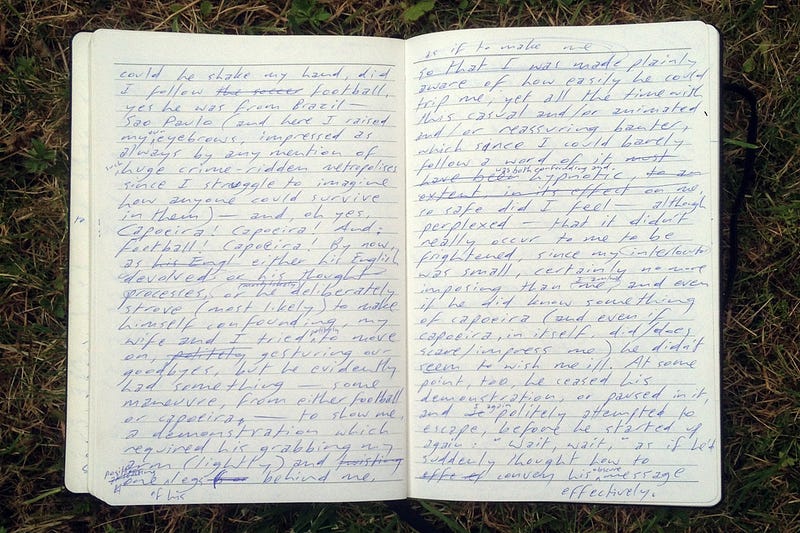 could he shake my hand, did
I follow the soccer football,
yes he was from Brazil —
Sao Paulo (and here I raised
my eyebrows, impressed as
always by any mention of
huge crime-ridden metropolises
since I struggle to imagine
how anyone could survive
in them) — and, oh yes,
Capoeira! Capoeira! And:
Football! Capoeira! By now,
as his Engl either his English
devolved or his thought
processes, or he deliberately
strove (most likely) to make
himself confounding, my
wife and I tried to move
on, politely gesturing our
goodbyes, but he evidently
had something — some
maneuver, from either football
or capoeira, — to show me,
a demonstration which
required his grabbing my
arm (lightly) and twisting
one leg behind me,
of his
as if to make me
so that I was made plainly
aware of how easily he could
trip me, yet all the time with
this casual and/or animated
and/or reassuring banter,
which since I could barely
follow a word of it most
was both confounding and
have been hypnotic, to an
extent in its effect on me,
so safe did I feel — although
perplexed — that it didn't
really occur to me to be
frightened, since my interlocutor
was small, certainly no more
imposing than me, and even
if he did know something
of capoeira (and even if
capoeira, in itself, did/does
scare/impress me) he didn't
seem to wish me ill. At some
point, too, he ceased his
demonstration, or paused in it,
and politely attempted to
escape, before he started up
again: "Wait, wait," as if he'd
suddenly thought how to
convey his obscure message
effectively.